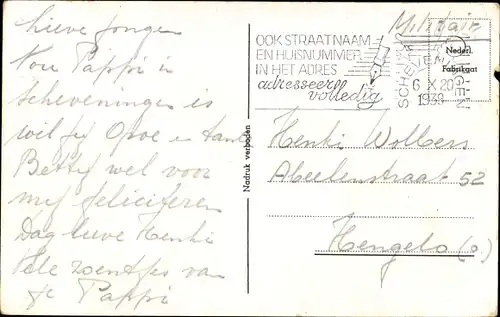 Lieve Jongen
Nou Pappi in
Scheveningen is
wil jij Opoe en tante
Betty wel voor
mij feliciteren
Dag lieve Henki
Vele zoentjes van
je Pappi
Nadruk verboden
OOK STRAATNAAM
EN HUISNUMMER
IN HET ADRES
adresseer
volledig
6 X 20
1938
Militair
Nederl.
Fabrikaat
Henki Wolbers
Abeelenstraat 52
Hengelo (O.)